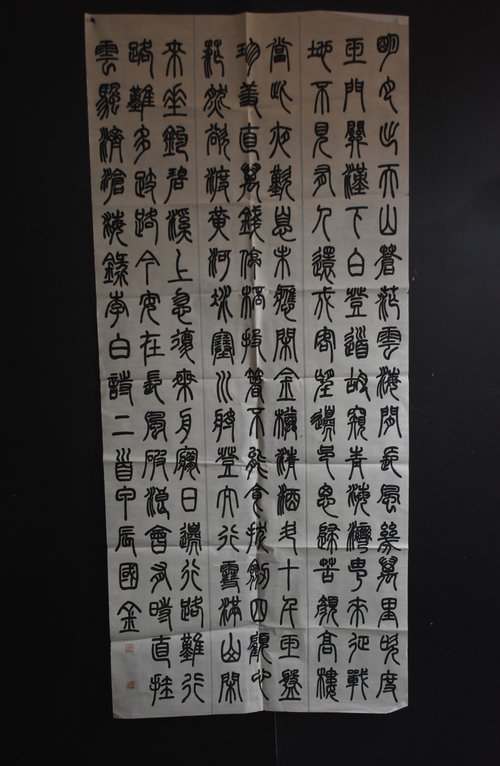 明月出天山蒼茫雲海間長風幾萬里吹度
玉門關漢下白登道胡窺青海灣由來征戰
地不見有人還戍客望邊邑思歸苦顏高樓
當此夜歎息未應閑金樽清酒斗十千玉盤
珍羞直萬錢停桮投箸不能食拔劍四顧心
茫然欲渡黃河冰塞川將登太行雪滿山閑
來坐釣碧溪上忽復乘舟夢日邊行路難行
路難多歧路今安在長風破浪會有時直挂
雲颿濟滄海錄李白詩二首甲辰國金